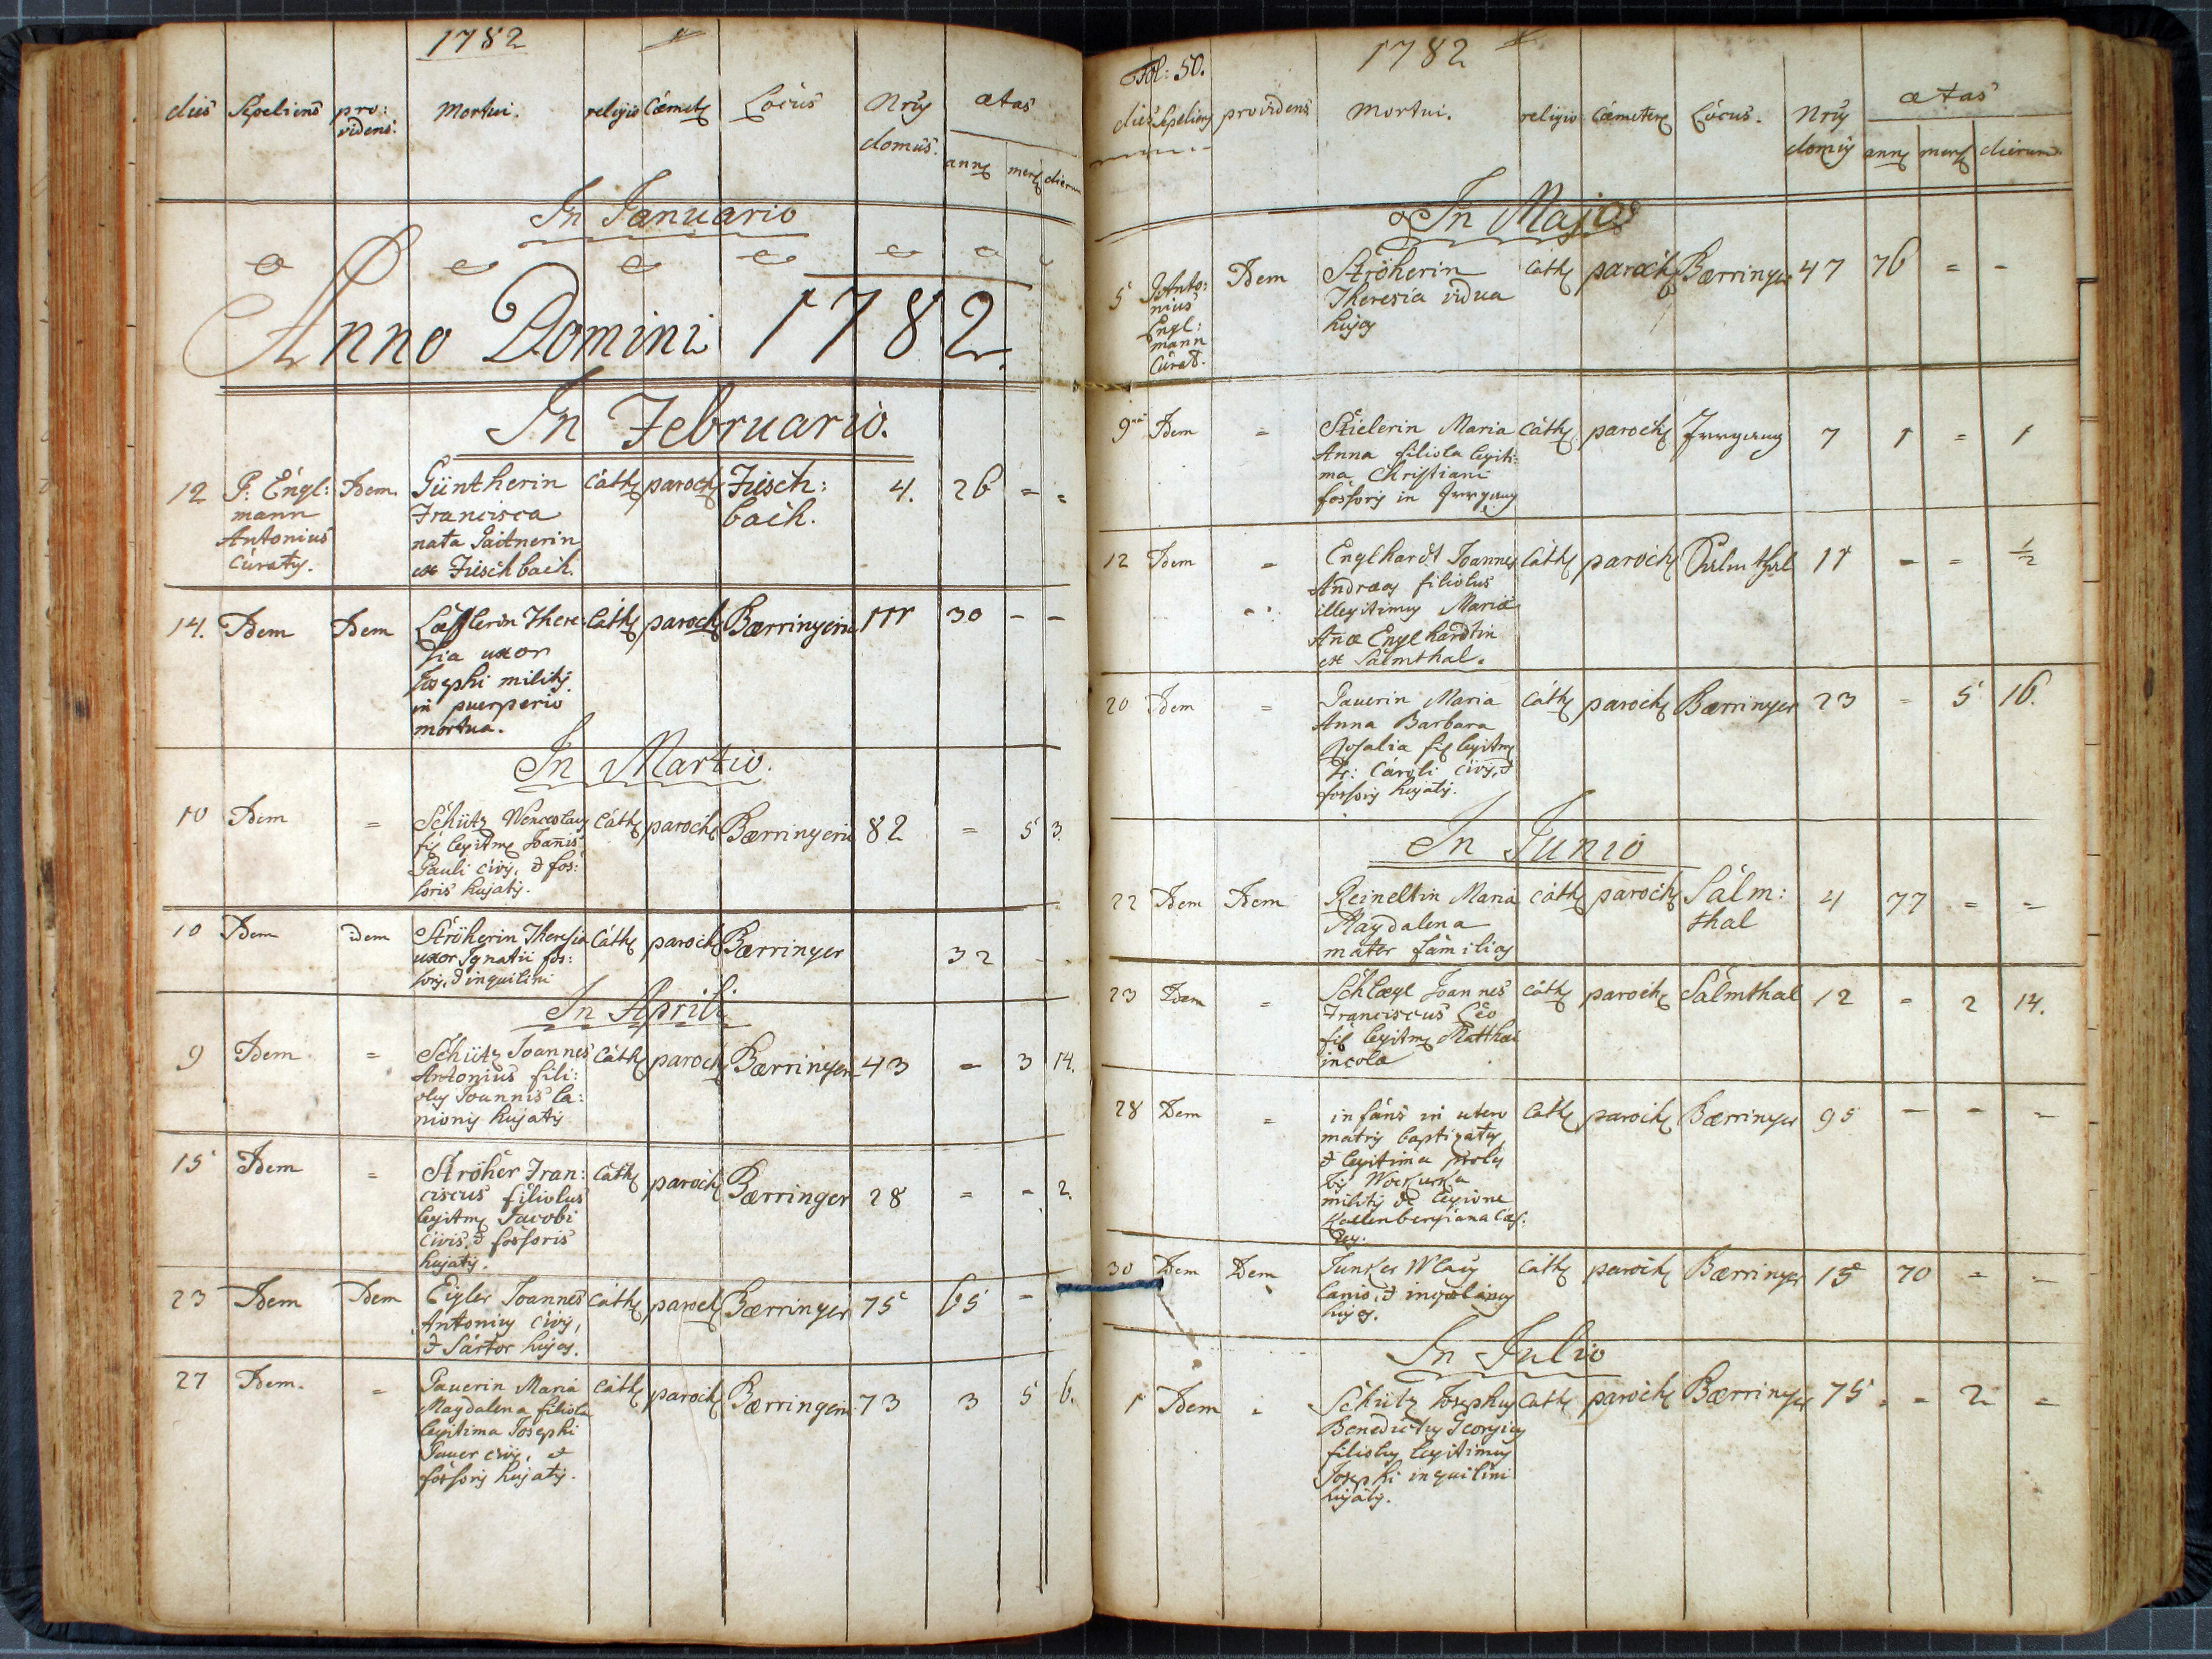 1782
dies Sepeliens pro: mortui. religio Cæmet Locus Nrus ætas
videns. domus. ann mens dierum
In Januario
Anno Domini 1782.
In Februario.
12 P: Engl: Idem. Güntherin Cath paroch Fisch: 4. 26 = =
mann Francisca bach.
Antonius nata
Curatus. ex Fischbach.
14. Idem Idem Læfflerin There: Cath paroch Bærringeni 111 30 - -
sia uxor
Josephi militis
in puerperio
mortua.
In Martio.
10 Idem = Schütz Wenceslaus Cath paroch Bærringeni 82 = 5 3.
fil legitm Joanis
Pauli civis, & fos:
soris hujatis.
10 Idem idem Ströherin Theresia Cath paroch Bærringer 32
uxor Ignatii fos:
soris, & inquilini
In Aprili
9 Idem = Schütz Joannes Cath paroch Bærringer 43 = 3 14.
Antonius fili:
olus Joannis la:
nionis hujatis
15 Idem = Ströher Fran: Cath paroch Bærringer 28 = - 2.
ciscus filiolus
legitm Jacobi
civis, & fossoris
hujatis.
23 Idem Idem Eigler Joannes Cath paroch Bærringer 75 65 -
Antonius civis,
& Sartor hujas.
27 Idem. = Pauerin Maria Cath paroch Bærringeni 73 3 5 6.
Magdalena filiola
legitima Josephi
Pauer civis, &
fossoris hujatis.
Fol: 50. 1782
dies Sepeliens providens mortui. religio Cæmeter Locus. Nrus ætas
domus ann mens dierum
In Majo
5 P Anto: Idem Ströherin Cath paroch Bærringer 47 76 = -
nius Theresia vidua
Engl: hujas
mann
Curat.
9na Idem = Stielerin Maria Cath paroch Irrgang 7 1 = 1
Anna filiola legiti:
ma Christiani
fossoris in Irrgang
12 Idem = Englhardt Joannes Cath paroch Salmthal 11 - = 1/2
Andreas filiolus
illegitimus Mariæ
Anæ Englhardtin
ex Salmthal.
20 Idem = Pauerin Maria Cath paroch Bærringer 23 = 5 16.
Anna Barbara
Rosalia fil legitm
Caroli civis, &
fossoris hujatis.
In Junio
22 Idem Idem Reineltin Maria Cath paroch Salm: 4 77 = =
Magdalena thal
mater familias
23 Idem = Schlægl Joannes Cath paroch Salmthal 12 = 2 14.
Franciscus Leo
fil legitm Matthæi
incolæ
28 Idem = infans in utero Cath paroch Bærringer 95 - - =
matris baptizatus,
& legitima proles
militis de legione
30 Idem Idem Junker Cath paroch Bærringer 15 70 = =
Lanio, &
hujas.
In Julio
1 Idem = Schütz Josephus Cath paroch Bærringer 75 = = 2 =
Benedictus Georgius
filiolus legitimus
Josephi inquilini
hujatis.